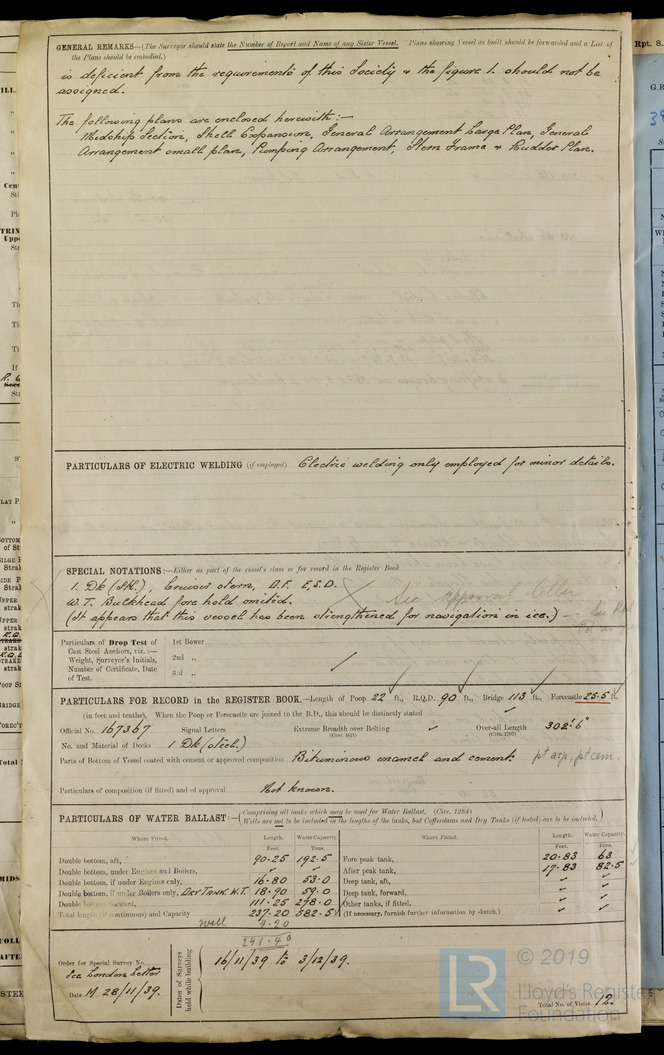 GENERAL REMARKS—(The Surveyor should state the Number of Report and Name of any Sister Vessel. Plans shewing Vessel as built should be forwarded and a List of
the Plans should be embodied.)
is deficient from the requirements of this Society & the figure 1. should not be
assigned.
The following plans are enclosed herewith:—
Midship Section, Shell Expansion, General Arrangement Large Plan, General
Arrangement small plan, Pumping Arrangement, Stern Frame & Rudder Plan.
PARTICULARS OF ELECTRIC WELDING (if employed) Electric welding only employed for minor details.
SPECIAL NOTATIONS:—Either as part of the vessel's class or for record in the Register Book
1. Dk (Stl.), Cruiser stern, D.F. E.S.D.
See approval letter
W.T. Bulkhead fore hold omitted.
(It appears that this vessel has been strengthened for navigation in ice.)
Particulars of Drop Test of
Cast Steel Anchors, viz.:—
Weight, Surveyor's Initials,
Number of Certificate, Date
of Test.
1st Bower
2nd „
3rd „
PARTICULARS FOR RECORD in the REGISTER BOOK.—Length of Poop 22 ft., R.Q.D. 90 ft., Bridge 113 ft., Forecastle 25.5 ft.
(in feet and tenths). When the Poop or Forecastle are joined to the B.D., this should be distinctly stated
Official No. 167367 Signal Letters Extreme Breadth over Belting Over-all Length 302'.6"
(Circ. 1611) (Circ. 1703)
No. and Material of Decks 1 Dk (steel.)
Parts of Bottom of Vessel coated with cement or approved composition Bituminous enamel and cement. pt asp, pt cem.
Particulars of composition (if fitted) and of approval Not known.
PARTICULARS OF WATER BALLAST:—(Comprising all tanks which may be used for Water Ballast. (Circ. 1284)
Wells are not to be included in the lengths of the tanks, but Cofferdams and Dry Tanks (if tested) are to be included.)
Where Fitted. Length. Water Capacity. Where Fitted. Length. Water Capacity.
Feet. Tons. Feet. Tons.
Double bottom, aft, 90.25 192.5 Fore peak tank, 20.83 63
Double bottom, under Engines and Boilers, After peak tank, 17.83 82.5
Double bottom, if under Engines only, 16.80 53.0 Deep tank, aft,
Double bottom, if under Boilers only, DRY TANK W.T. 18.90 59.0 Deep tank, forward,
Double bottom, forward, 111.25 278.0 Other tanks, if fitted,
Total length (if continuous) and Capacity 237.20 582.5 (If necessary, furnish further information by sketch.)
Well 4.20
241.40
Order for Special Survey No.
See London Letter
Date M 28/11/39.
Dates of Surveys
held while building
16/11/39 to 3/12/39.
Total No. of Visits 12.
LR
© 2019
Lloyd's Register
Foundation
Rpt. 8.